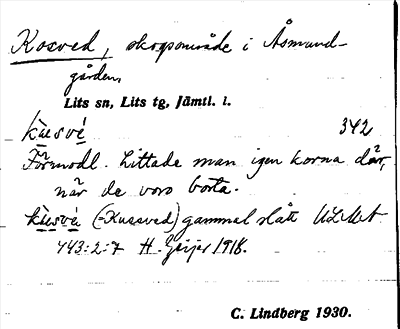 Kosved, skogsområde i Åsmund-
gården,
Lits sn, Lits tg, Jämtl. l.
kùsvé 342
Förmodl. hittade man igen korna där,
när de voro borta.
kùsvé (=Kusved) gammal slått ULMA
443:2:7 H. Geijer 1918.
C. Lindberg 1930.